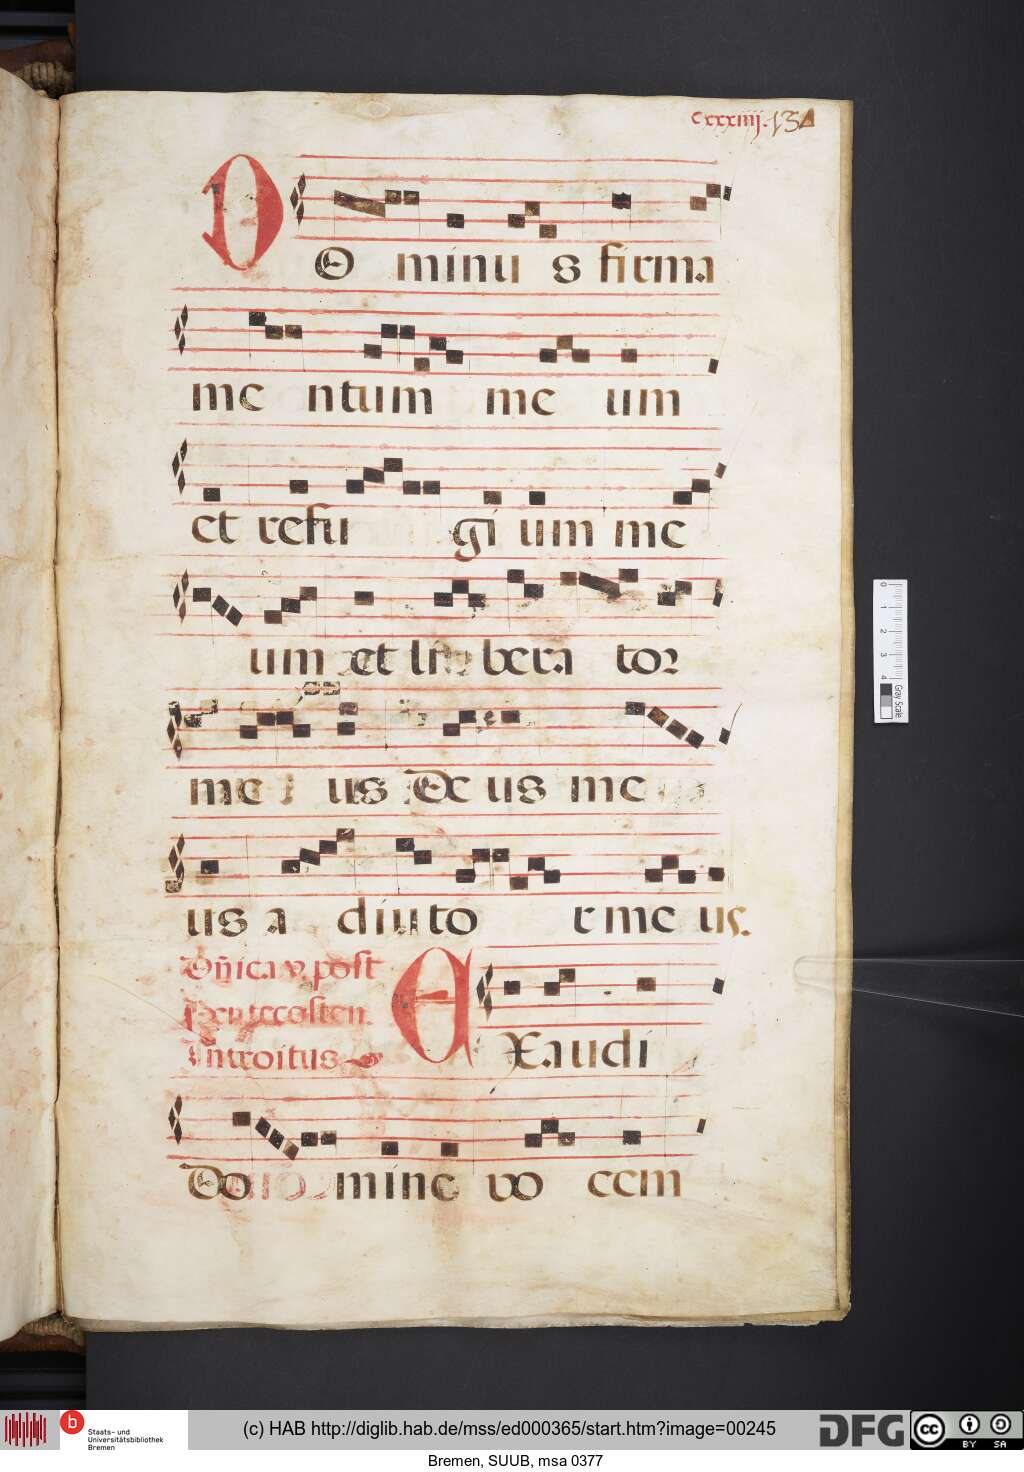 cxxxiiij. 134
DO minu s firma
me ntum me um
et refu gi um me
um et li bera tor
me us De us me
us a diuto r me us.
Dñica v. post
Pentecosten.
Introitus
EXaudi
Do mine vo cem
0 1 2 3 4
Gray Scale
Staats- und
Universitätsbibliothek
Bremen
(c) HAB http://diglib.hab.de/mss/ed000365/start.htm?image=00245
DFG
cc BY SA
Bremen, SUUB, msa 0377